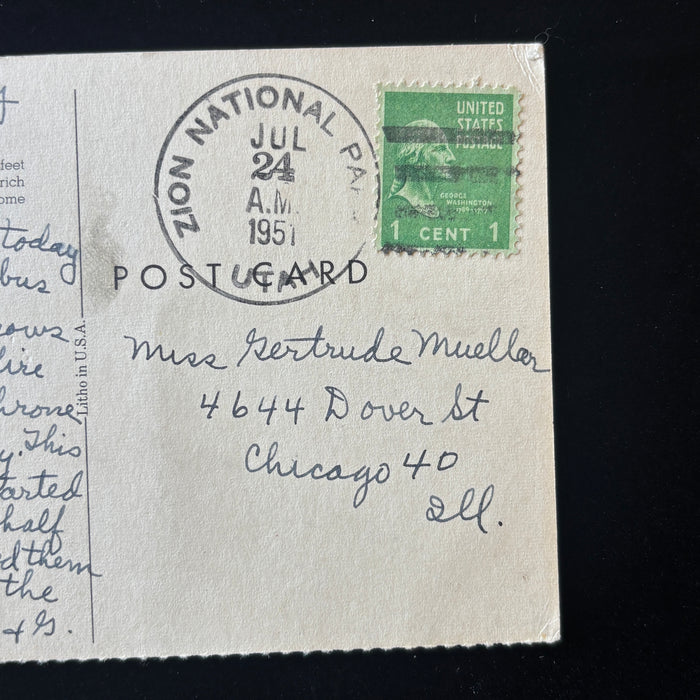 feet
rich
ome
today
bus
ows
ire
hrone
y. This
arted
half
d them
the
+ G.
Litho in U.S.A.
ZION NATIONAL PA
JUL
24
A.M.
1951
UTAH
UNITED
STATES
POSTAGE
GEORGE
WASHINGTON
1 CENT 1
POST CARD
Miss Gertrude Mueller
4644 Dover St
Chicago 40
Ill.